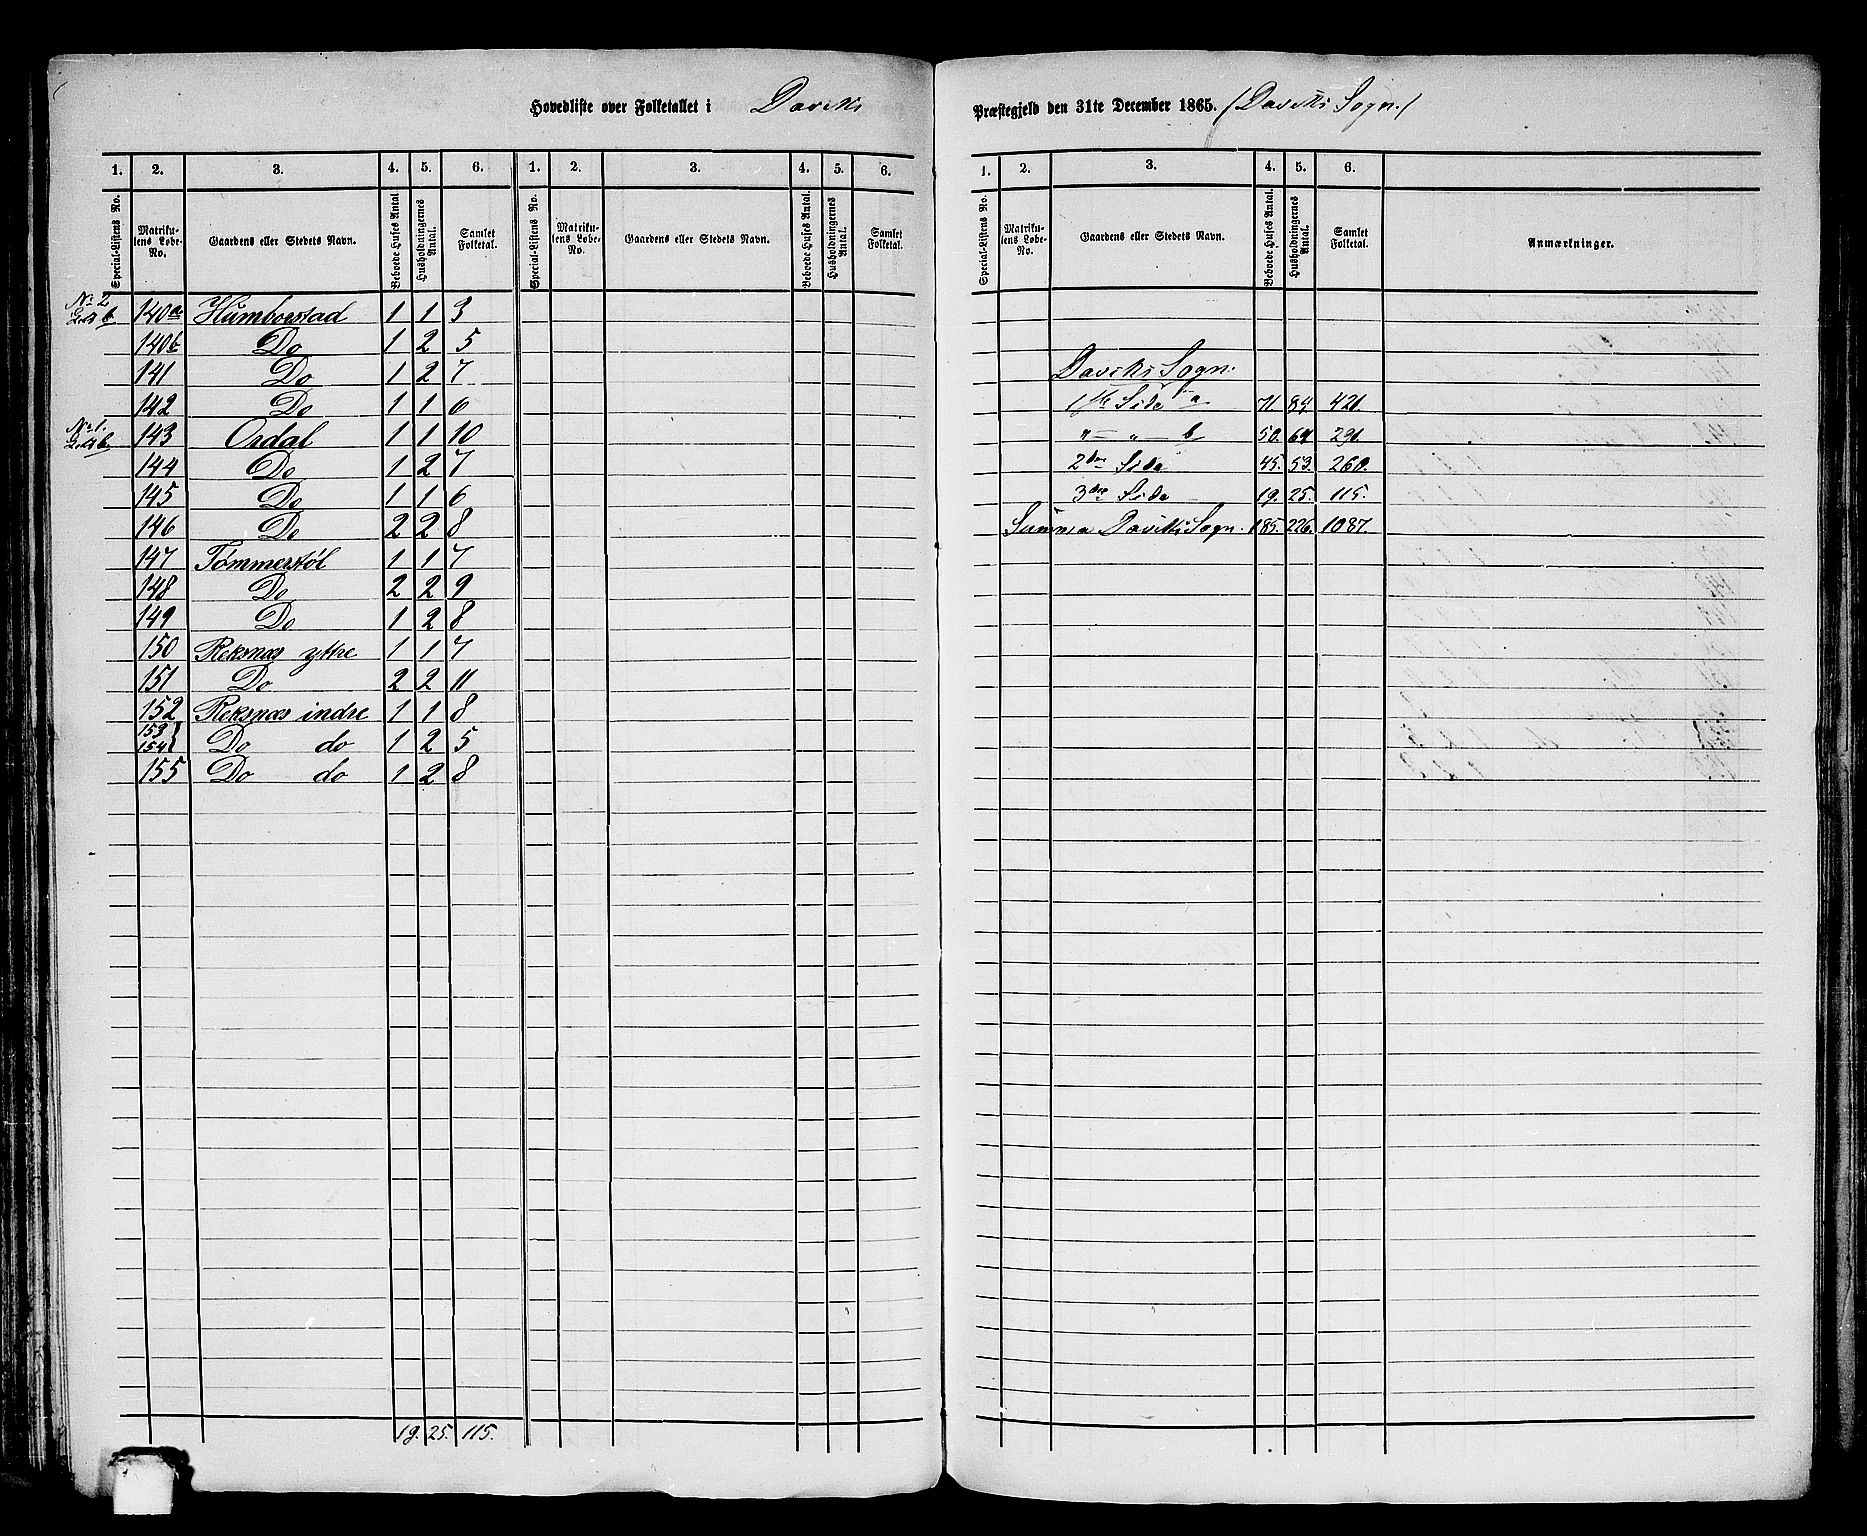 Hovedliste over Folketallet i Daviks Præstegjeld den 31te December 1865. (Daviks Sogn.)
1. 2. 3. 4. 5. 6. 1. 2. 3. 4. 5. 6.
Special-Listens No. Matrikulens Løbe-No. Gaardens eller Stedets Navn. Beboede Huses Antal. Husholdningernes Antal. Samlet Folketal. Special-Listens No. Matrikulens Løbe-No. Gaardens eller Stedets Navn. Beboede Huses Antal. Husholdningernes Antal. Samlet Folketal.
No 2 140a Humborstad 1 1 3
140b Do 1 2 5
141 Do 1 2 7
142 Do 1 1 6
No 1. 143 Ordal 1 1 10
144 Do 1 2 7
145 Do 1 1 6
146 Do 2 2 8
147 Tømmerstøl 1 1 7
148 Do 2 2 9
149 Do 1 2 8
150 Reksnæs yttre 1 1 7
151 Do 2 2 11
152 Reksnæs indre 1 1 8
153
154 Do do 1 2 5
155 Do do 1 2 8
19. 25. 115.
1. 2. 3. 4. 5. 6.
Special-Listens No. Matrikulens Løbe-No. Gaardens eller Stedets Navn. Beboede Huses Antal. Husholdningernes Antal. Samlet Folketal. Anmærkninger.
Daviks Sogn.
1ste Side a 71. 84. 421.
" — " — b 50. 64. 291.
2den Side 45. 53. 260.
3die Side 19. 25. 115.
Summa Daviks Sogn. 185. 226. 1087.